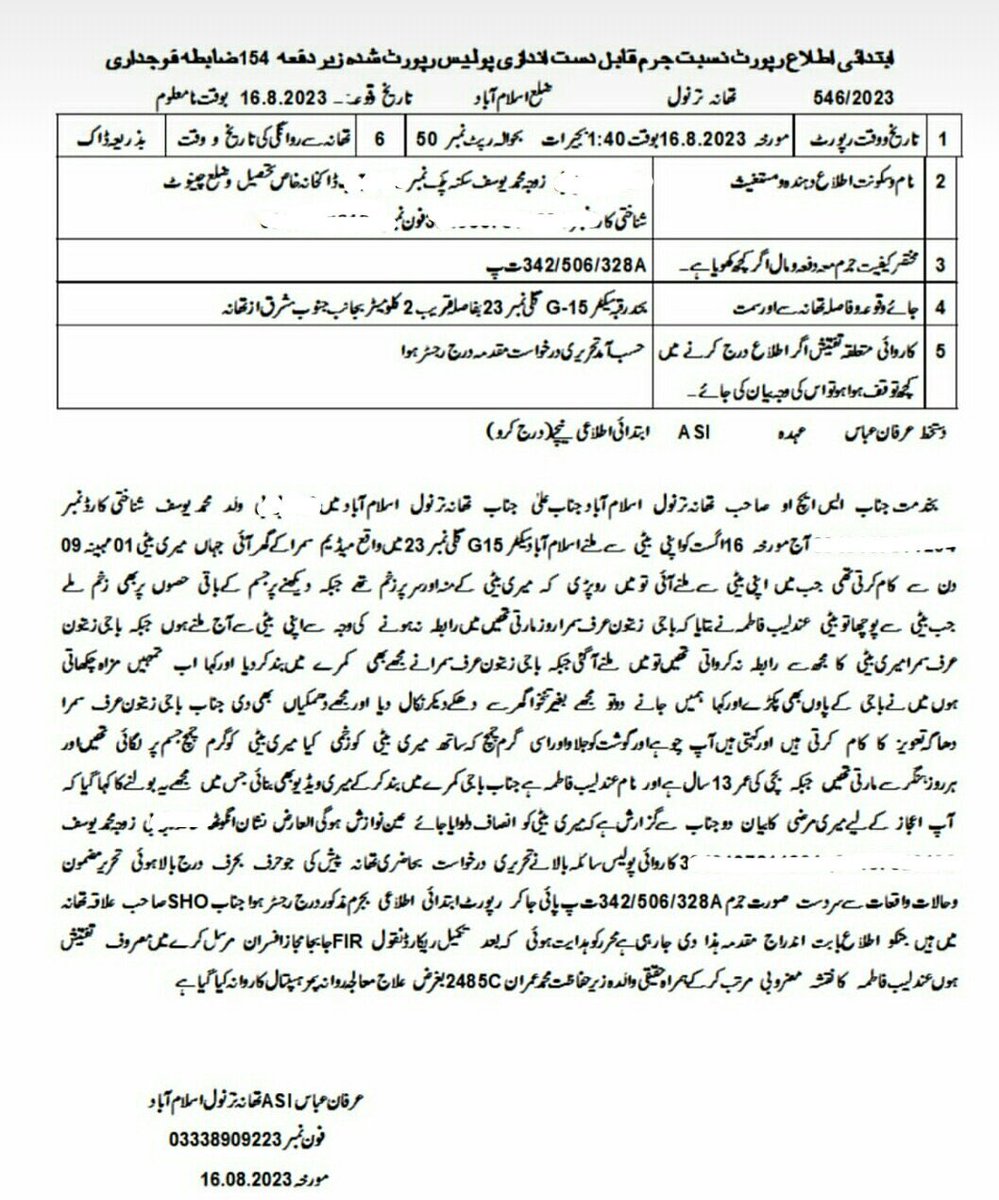 ابتدائی اطلاع رپورٹ نسبت جرم قابل دست اندازی پولیس رپورٹ شدہ زیر دفعہ 154 ضابطہ فوجداری
546/2023 تھانہ ترنول ضلع اسلام آباد تاریخ وقوعہ۔ 16.8.2023 بوقت نامعلوم
1 تاریخ و وقت رپورٹ مورخہ 16.8.2023 بوقت 1:40 بجے رات بحوالہ رپٹ نمبر 50 6 تھانہ سے روانگی کی تاریخ و وقت بذریعہ ڈاک
2 نام و سکونت اطلاع دہندہ و مستغیث زوجہ محمد یوسف سکنہ چک نمبر ڈاکخانہ خاص تحصیل و ضلع چنیوٹ
شناختی کارڈ فون نمبر
3 مختصر کیفیت جرم معہ دفعہ و مال اگر کچھ کھویا ہے۔ 342/506/328A ت پ
4 جائے وقوعہ و فاصلہ تھانہ سے اور سمت بحد رقبہ سیکٹر G-15 گلی نمبر 23 بفاصلہ قریب 2 کلومیٹر بجانب جنوب مشرق از تھانہ
5 کاروائی متعلقہ تفتیش اگر اطلاع درج کرنے میں حسب آمد تحریری درخواست مقدمہ درج رجسٹر ہوا
کچھ توقف ہوا ہو تو اس کی وجہ بیان کی جائے۔
دستخط عرفان عباس عہدہ ASI ابتدائی اطلاعی نیچے (درج کرو)
بخدمت جناب ایس ایچ او صاحب تھانہ ترنول اسلام آباد جناب عالیٰ جناب تھانہ ترنول اسلام آباد میں ولد محمد یوسف شناختی کارڈ نمبر
آج مورخہ 16 اگست کو اپنی بیٹی سے ملنے اسلام آباد سیکٹر G15 گلی نمبر 23 میں واقع میڈیم سمرا کے گھر آئی جہاں میری بیٹی 01 مہینہ 09
دن سے کام کرتی تھی جب میں اپنی بیٹی سے ملنے آئی تو میں رو پڑی کہ میری بیٹی کے منہ اور سر پر زخم تھے جبکہ دیکھنے پر جسم کے باقی حصوں پر بھی زخم ملے
جب بیٹی سے پوچھا تو بیٹی عندلیب فاطمہ نے بتایا کہ باجی زیتون عرف سمرا روز مارتی تھیں میں رابطہ نہ ہونے کی وجہ سے اپنی بیٹی سے آج ملنے ہوں جبکہ باجی زیتون
عرف سمرا میری بیٹی کا مجھ سے رابطہ نہ کرواتی تھیں تو میں ملنے آ گئی جبکہ باجی زیتون عرف سمرا نے مجھے بھی کمرے میں بند کر دیا اور کہا اب تمہیں مزاہ چکھاتی
ہوں میں نے باجی کے پاوں بھی پکڑے اور کہا ہمیں جانے دو تو مجھے بغیر تنخوا گھر سے دھکے دیکر نکال دیا اور مجھے دھمکیاں بھی دی جناب باجی زیتون عرف سمرا
دھاگہ تعویز کا کام کرتی ہیں اور کہتی ہیں آپ چوہے اور گوشت کو جلاو اور اسی گرم چمچ کے ساتھ میری بیٹی کو زخمی کیا میری بیٹی کو گرم چمچ جسم پر لگاتی تھیں اور
ہر روز ہینگر سے مارتی تھیں جبکہ بچی کی عمر 13 سال ہے اور نام عندلیب فاطمہ ہے جناب باجی کمرے میں بند کر کے میری ویڈیو بھی بنائی جس میں مجھے یہ بولنے کا کہا گیا کہ
آپ اعجاز کے لیے میری مرضی کا بیان دو جناب سے گزارش ہے کہ میری بیٹی کو انصاف دلوایا جائے عین نوازش ہوگی العارض نشان انگوٹھہ زوجہ محمد یوسف
کاروائی پولیس سائلہ بالا نے تحریری درخواست بحاضری تھانہ پیش کی جو حرف بحرف درج بالا ہوئی تحریر مضمون
و حالات واقعات سے سردست صورت جرم 342/506/328A ت پ پائی جا کر رپورٹ ابتدائی اطلاعی بجرم مذکور درج رجسٹر ہوا جناب SHO صاحب علاقہ تھانہ
میں ہیں جنکو اطلاع بابت اندراج مقدمہ ہذا دی جا رہی ہے محرر کو ہدایت ہوئی کہ بعد تکمیل ریکارڈ نقول FIR جابجا مجاز افسران مرسل کرے میں مصروف تفتیش
ہوں عندلیب فاطمہ کا نقشہ مضروبی مرتب کر کے ہمراہ حقیقی والدہ زیر حفاظت محمد عمران 2485C بغرض علاج معالجہ روانہ پمز ہسپتال کا روانہ کیا گیا ہے
عرفان عباس ASI تھانہ ترنول اسلام آباد
فون نمبر 03338909223
مورخہ 16.08.2023